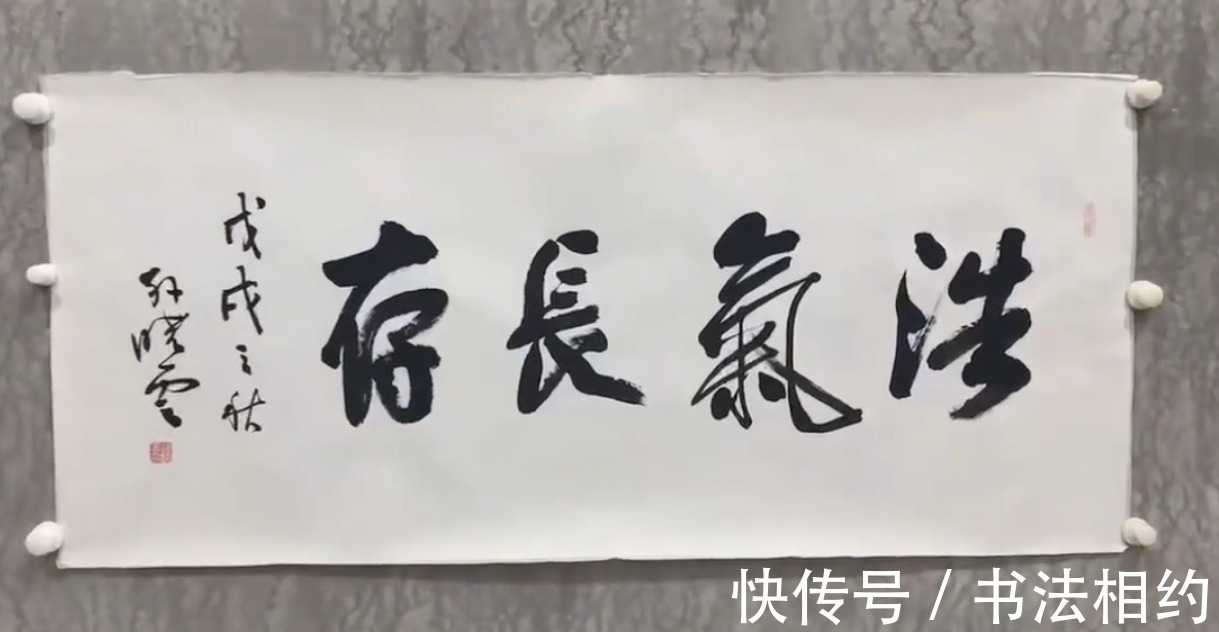 浩氣長存
戊戌之秋
孙晓雲
快传号 / 书法相约